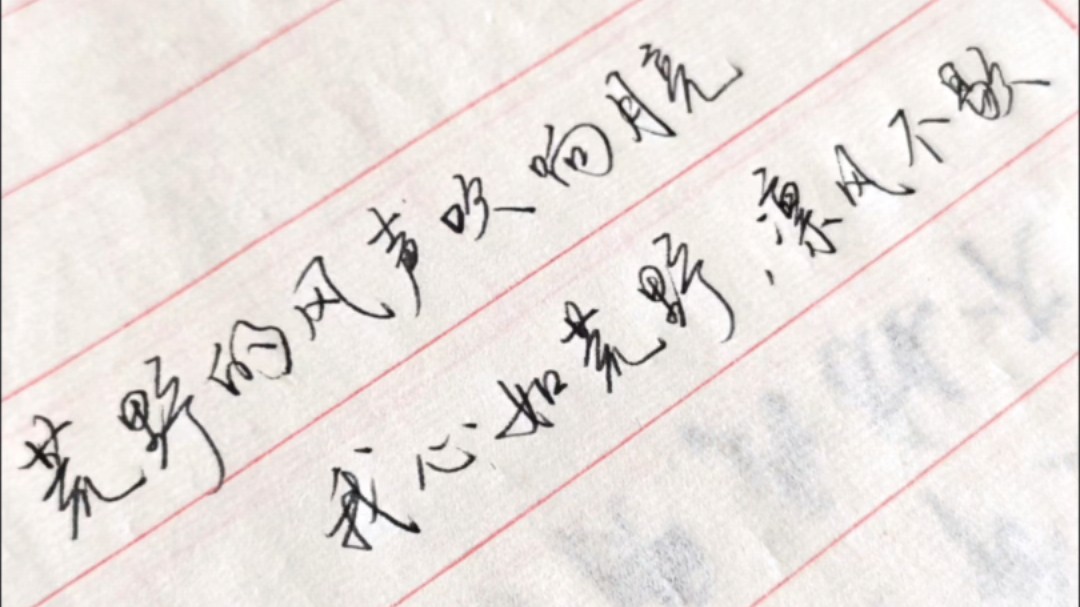 荒野的风声吹响月亮
我心如荒野,漂风不歇